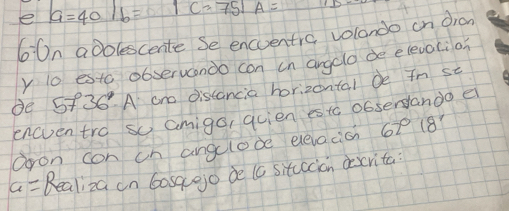 e |a=40 |b= | C=75| A=
6-Un adolescente se encuentra volando un dron
y lo esta observando con un angulo de elevación
de 57° 36' A una distancia horizontal de 7m se
encuentra su amiga, quien esta observando el
dron con un angulo de elevación 67° 18'
a = Realiza un bosquejo de la situación descrita: